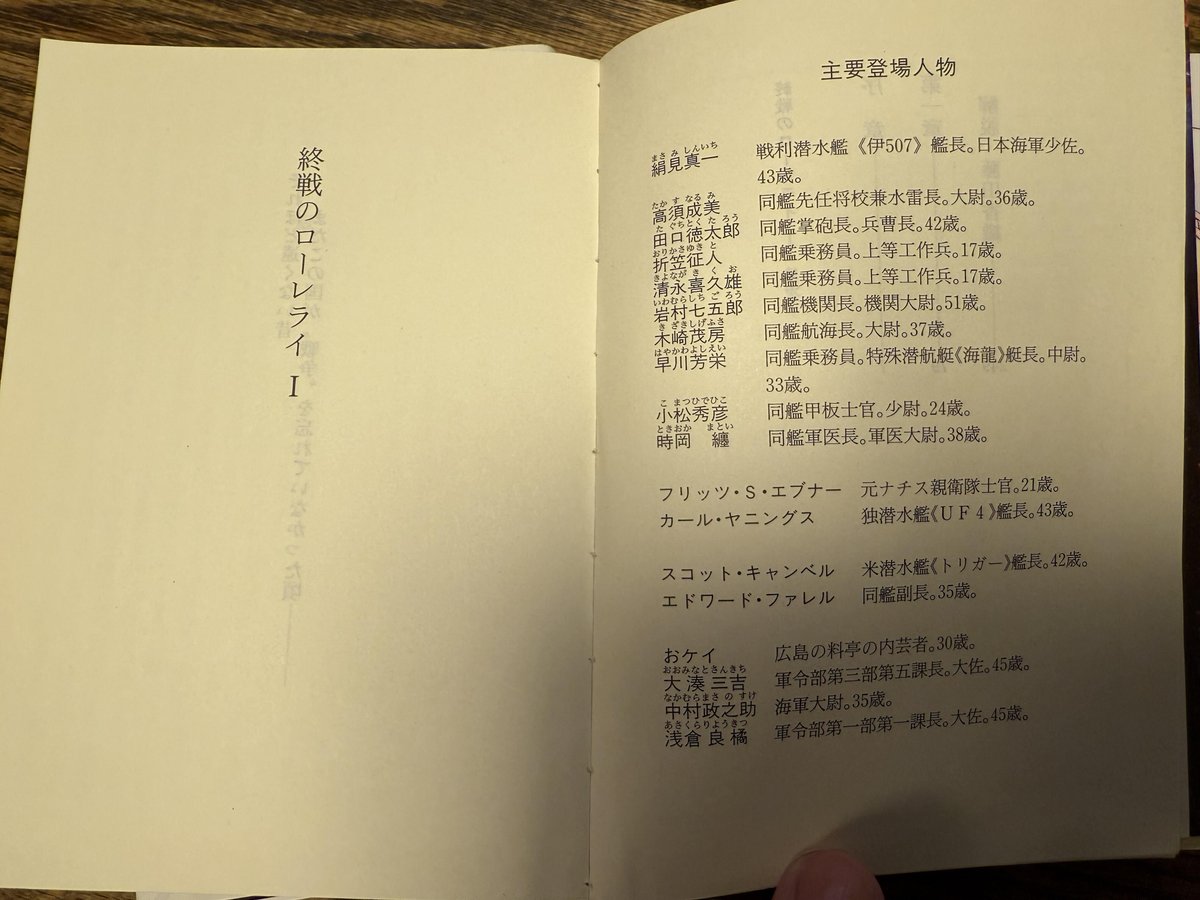 主要登場人物
まさみしんいち
絹見真一 戦利潜水艦《伊507》艦長。日本海軍少佐。
43歳。
たかすなるみ
高須成美 同艦先任将校兼水雷長。大尉。36歳。
たぐちとくたろう
田口徳太郎 同艦掌砲長。兵曹長。42歳。
おりかさゆきと
折笠征人 同艦乗務員。上等工作兵。17歳。
きよながきくお
清永喜久雄 同艦乗務員。上等工作兵。17歳。
いわむらしちごろう
岩村七五郎 同艦機関長。機関大尉。51歳。
きざきしげふさ
木崎茂房 同艦航海長。大尉。37歳。
はやかわよしえい
早川芳栄 同艦乗務員。特殊潜航艇《海龍》艇長。中尉。
33歳。
こまつひでひこ
小松秀彦 同艦甲板士官。少尉。24歳。
ときおか まとい
時岡 纏 同艦軍医長。軍医大尉。38歳。
フリッツ・S・エブナー 元ナチス親衛隊士官。21歳。
カール・ヤニングス 独潜水艦《UF4》艦長。43歳。
スコット・キャンベル 米潜水艦《トリガー》艦長。42歳。
エドワード・ファレル 同艦副長。35歳。
おケイ 広島の料亭の内芸者。30歳。
おおみなとさんきち
大湊三吉 軍令部第三部第五課長。大佐。45歳。
なかむらまさのすけ
中村政之助 海軍大尉。35歳。
あさくらりようきつ
浅倉良橘 軍令部第一部第一課長。大佐。45歳。
終戦のローレライ I